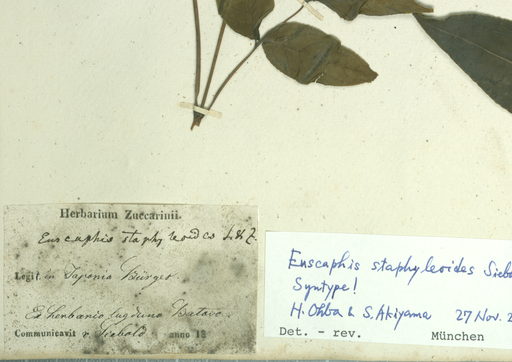 Herbarium Zuccarinii.
Euscaphis staphyleoides S. & Z.
Legit. in Japonia Bürger
Ex herbario Lugduno Batavo.
Communicavit v. Siebold anno 18
Euscaphis staphyleoides Siebo
Syntype!
H. Ohba & S. Akiyama 27 Nov. 2
Det. - rev. München